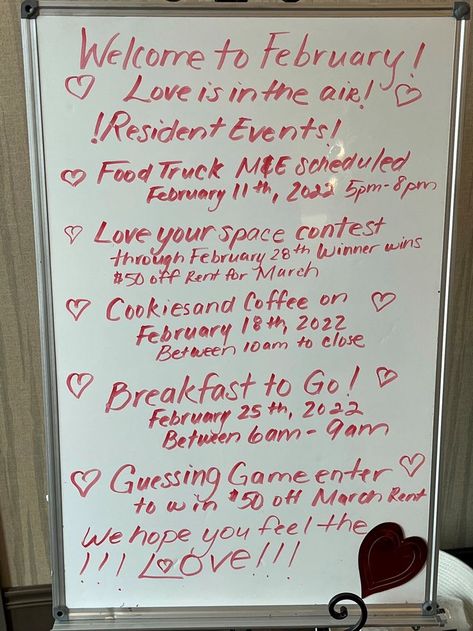 Welcome to February!
Love is in the air!
!Resident Events!
Food Truck M&E scheduled
February 11th, 2022 5pm-8pm
Love your space contest
through February 28th Winner wins
$50 off Rent for March
Cookies and Coffee on
February 18th, 2022
Between 10am to close
Breakfast to Go!
February 25th, 2022
Between 6am-9am
Guessing Game enter
to win $50 off March Rent
We hope you feel the
!!! LOVE!!!